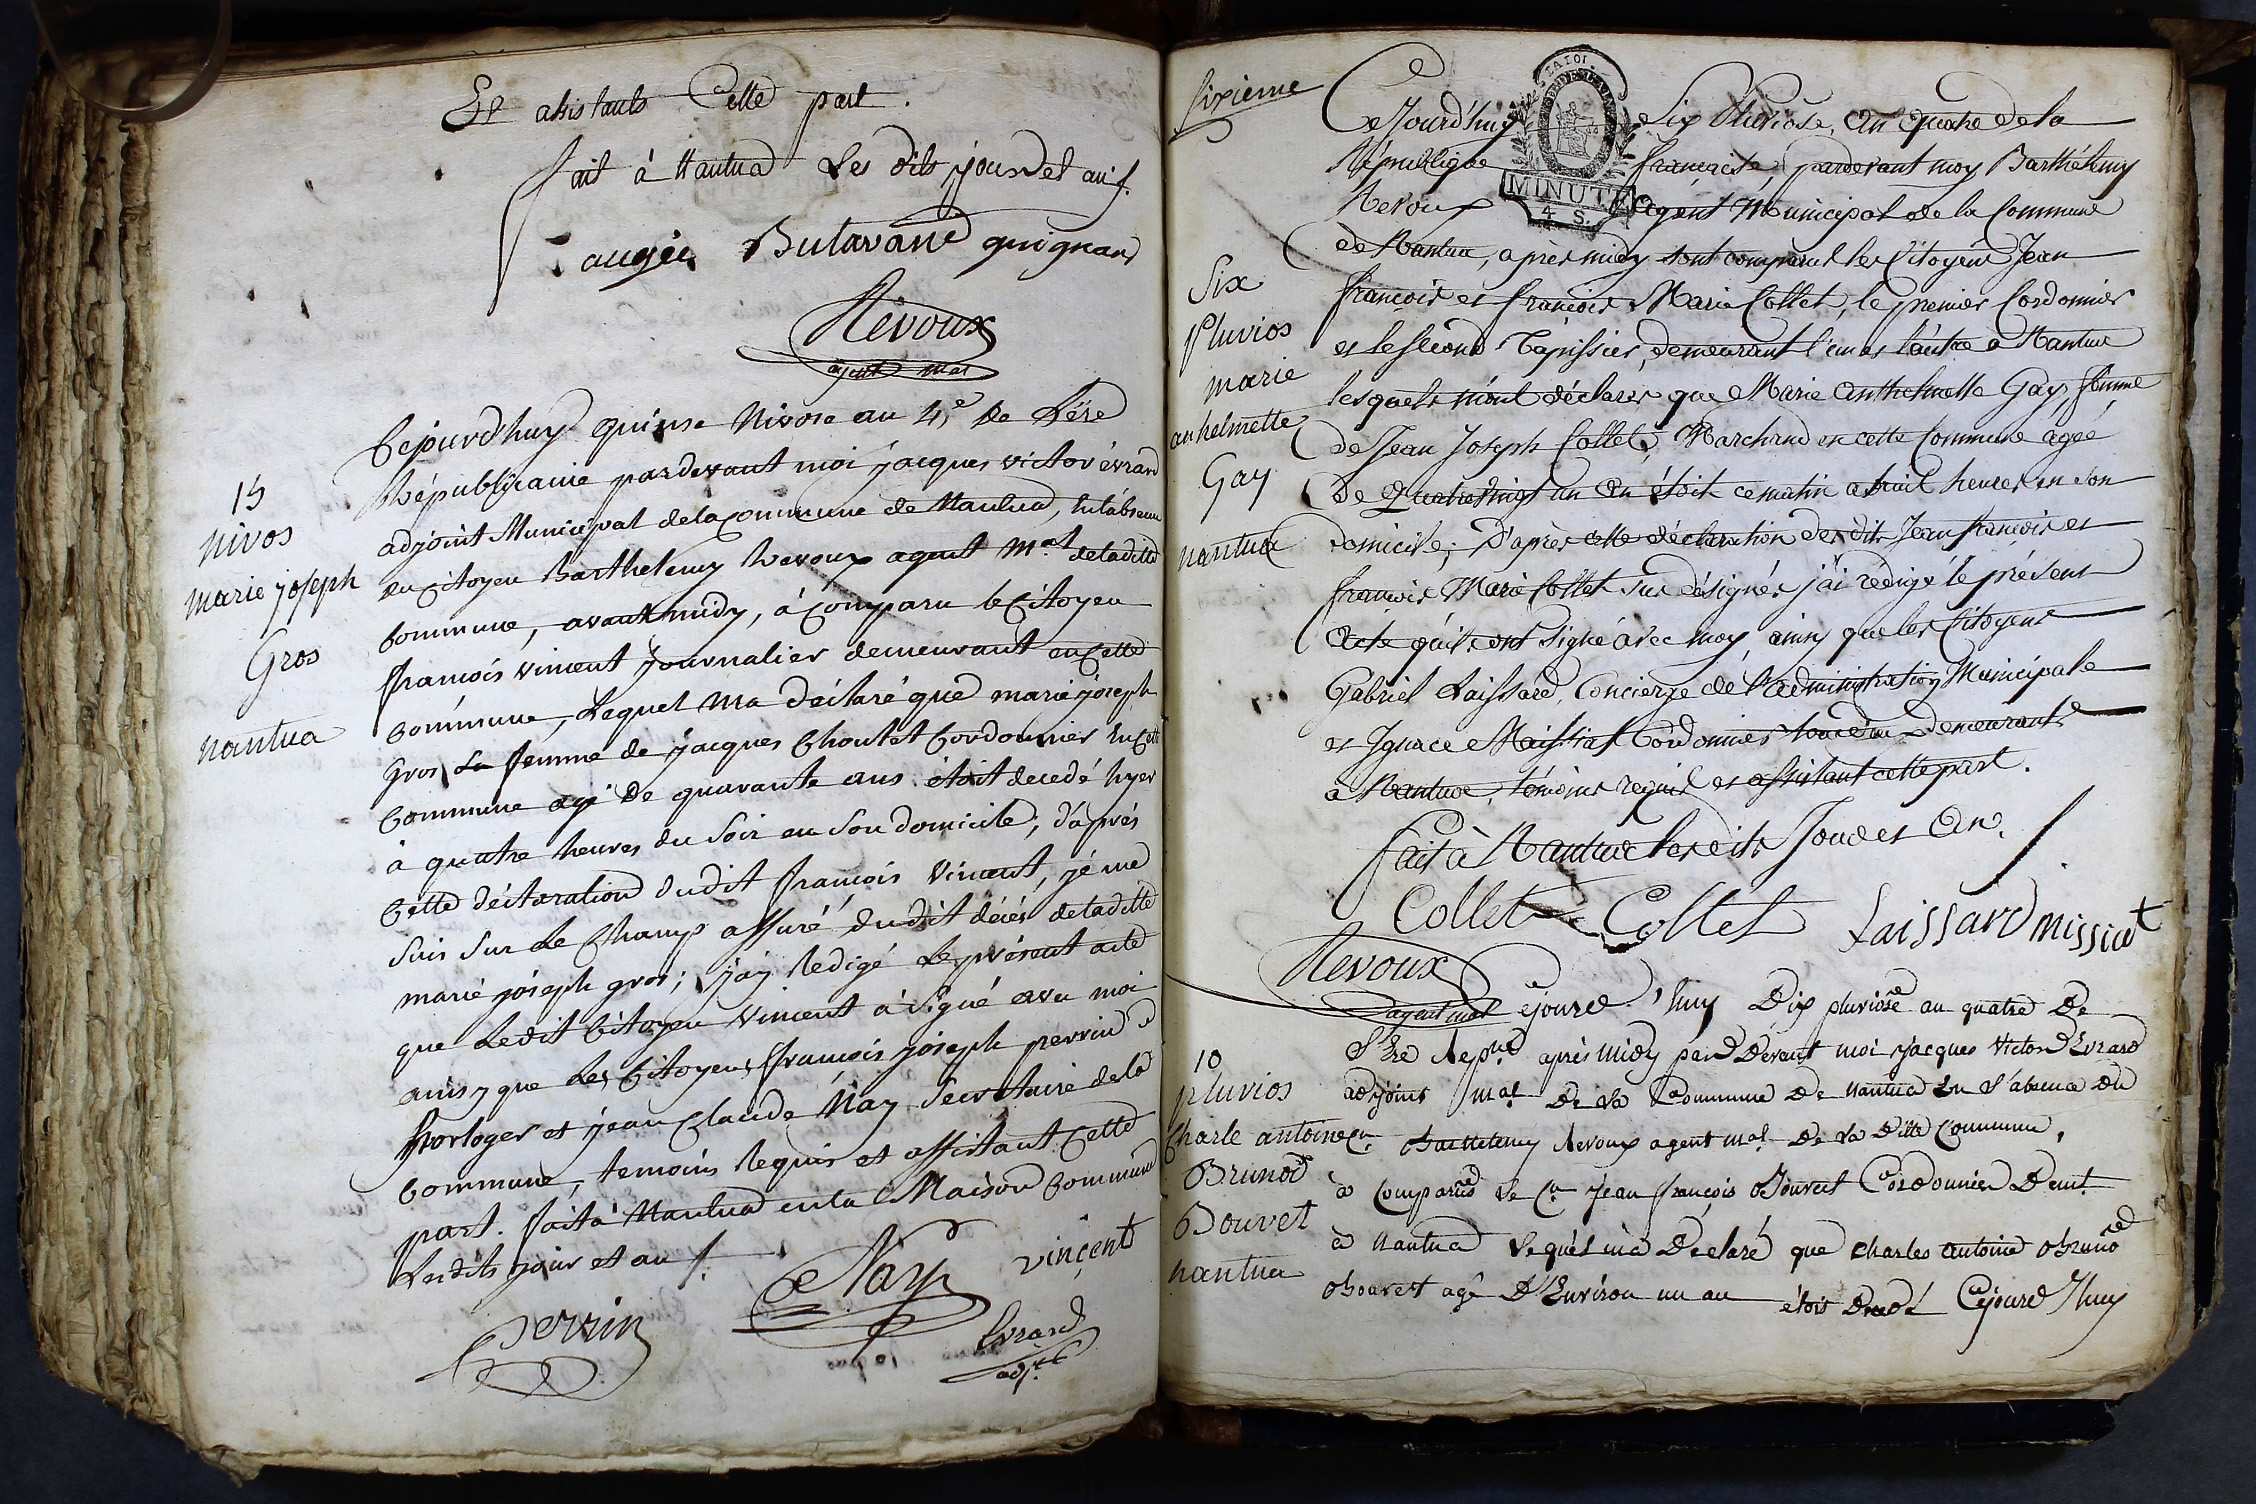 Et assistants Cette part.
fait à Nantua Les dits jour et an ʃ.
augéé Butavand guignard
Nevoux
agent mal
15
nivos
marie joseph
Gros
nantua
Cejourd'huy quinse Nivose an 4,e de L'ére
Républiquaine pardevant moi jacques victor évrard
adjoint Municipal de la Commune de Nantua, En l'absence
du Citoyen Barthelemy Nevoux agent m.al de laditte
Commune, avant midy, à Comparu le Citoyen
françois vincent journalier demeurant en Cette
Commune, Lequel ma déclaré que marie joseph
Gros La femme de jacques Choulet Cordonnier En Cette
Commune agé de quarante ans étoit decedé hyer
à quatre heures du Soir en Son domicile, d'aprés
Cette déclaration dudit françois vincent, je me
Suis Sur Le Champ assuré dudit décés de laditte
marie joseph gros; j'ay Redigé Le présent acte
que Ledit Citoyen vincent à Signé avec moi
ainsy que Les Citoyens françois joseph perrin
horloger et jean Claude Nay Secretaire de la
Commune, temoins Requis et assistant Cette
part. fait à Nantua en la Maison Commune
Lesdits jour et an ʃ.
Perrin Nay vinçent
Evrard
adj.t
Sixieme
SIX
Pluvios
marie
anhelmette
Gay
nantua
MINUTE
4 S.
Cejourd'huy Six Pluviose, An Quatre de la
République française, pardevant moy Barthélemy
Nevoux Agent Municipal de la Commune
de Nantua, après midy sont comparus les Citoyens Jean
françois et françois Marie Collet, le premier Cordonnier
et le second Tapissier, demeurant l'un et l'autre a Nantua
lesquels m'ont déclarés que Marie Anthelmette Gay, femme
de Jean Joseph Collet, Marchand en cette Commune agée
de Quatrevingt un an étoit ce matin a huit heures en son
domicile; D'après cette déclaration des dits Jean françois et
françois Marie Collet sus désignés j'ai rédigé le présent
Acte qu'ils ont Signé avec moy, ainsy que les Citoyens
Gabriel Laissard, Concierge de l'Administration Municipale
et Ignace Maissiat Cordonnier tous deux demeurants
a Nantua, témoins requis et assistant cette part.
fait à Nantua lesdits Jour et An.
Collet Collet Laissard missiat
Nevoux
agent mal
10
pluvios
Charle antoine
Brunod
Bouvet
nantua
Cejourd'huy Dix pluviose an quatre De
L'Ere Rep.ne après midy pard Devant moi jacques Victor Evrard
adjoint m.al De La Commune De Nantua En L'absence du
C.n Barthelemy Nevoux agent m.al De La Ditte Commune,
a Comparue Le C.n Jean françois Bouvet Cordonnier Demt.
a Nantua Lequel m'a Déclaré que Charles antoine Bruno
Bouvet agé D'Environ un an étoit Decedé Cejourd'huy